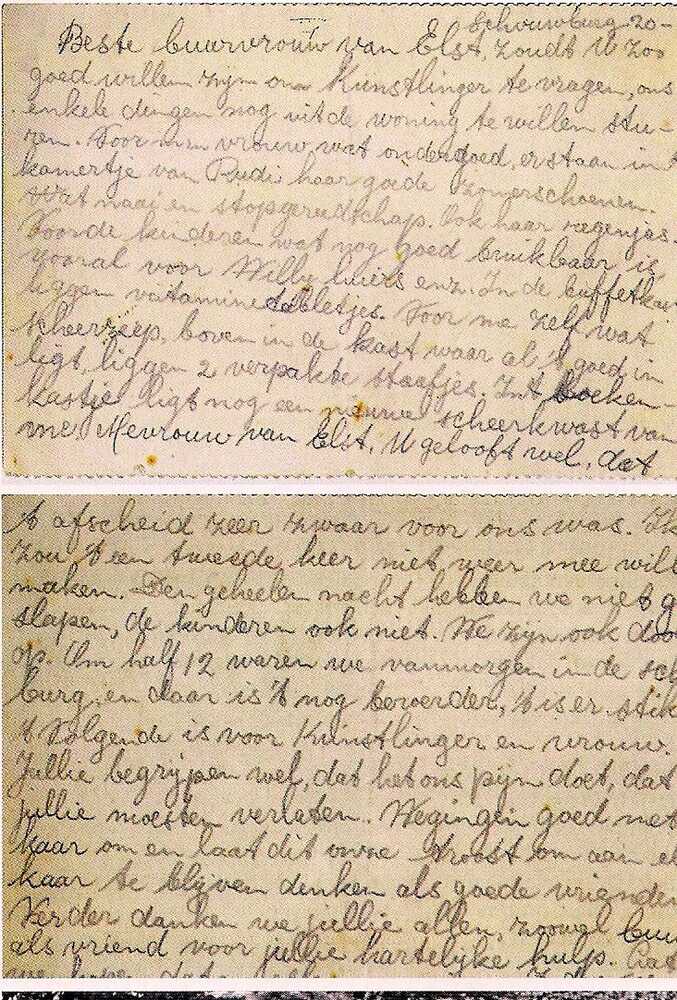 Schouwburg 20-
Beste buurvrouw van Elst, zoudt U zoo
goed willen zijn om Kunstlinger te vragen, ons
enkele dingen nog uit de woning te willen stu-
ren. Voor mijn vrouw, wat ondergoed, er staan in 't
kamertje van Rudi haar goede zomerschoenen.
Wat naai en stopgereedschap. Ook haar regenjas.
Voor de kinderen wat nog goed bruikbaar is,
vooral voor Willy luiers enz. In de buffetkas
liggen vitamine tabletjes. Voor me zelf wat
scheerzeep, boven in de kast waar al 't goed in
ligt, liggen 2 verpakte staafjes. In 't boeken-
kastje ligt nog een nieuwe scheerkwast van
me. Mevrouw van Elst, U gelooft wel, dat
't afscheid zeer zwaar voor ons was. Ik
zou 't een tweede keer niet weer mee will
maken. Den geheelen nacht hebben we niet g
slapen, de kinderen ook niet. We zijn ook doo
op. Om half 12 waren we vanmorgen in de sch
burg, en daar is 't nog beroerder, 't is er stik
't Volgende is voor Kunstlinger en vrouw.
Jullie begrijpen wel, dat het ons pijn doet, dat
jullie moesten verlaten. We gingen goed met
kaar om en laat dit onze troost om aan el
kaar te blijven denken als goede vrienden
Verder danken we jullie allen, zoowel buur
als vriend voor jullie hartelijke hulp.
we hopen dat